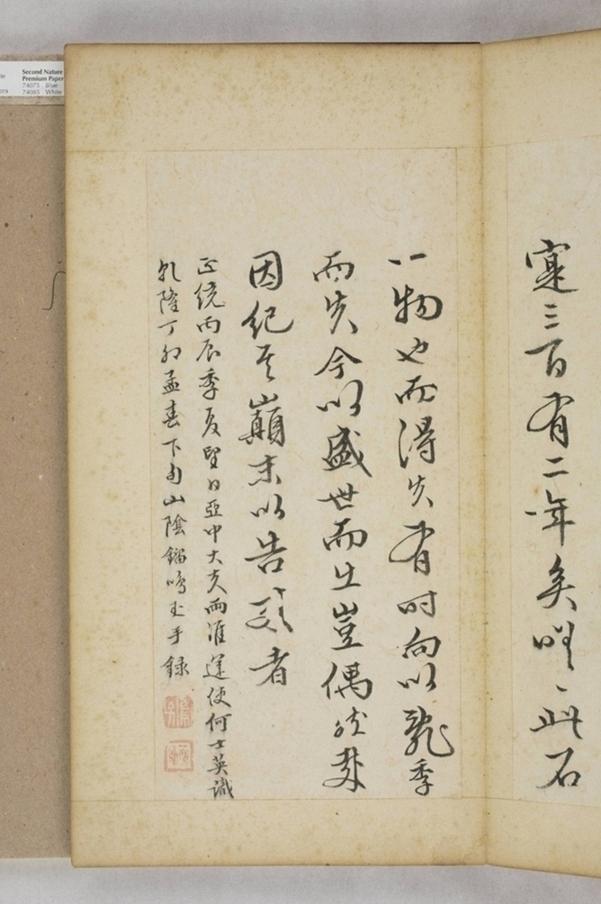 Second Nature
Premium Paper
74075 Blue
74085 White
寔三百有二年矣此石
一物也而得失有时向以季
而失今以盛世而出豈偶然哉
因紀其巔末以告觀者
正統丙辰季夏望日亞中大夫兩淮運使何士英識
乾隆丁卯孟春下旬山陰鎦鳴玉手録